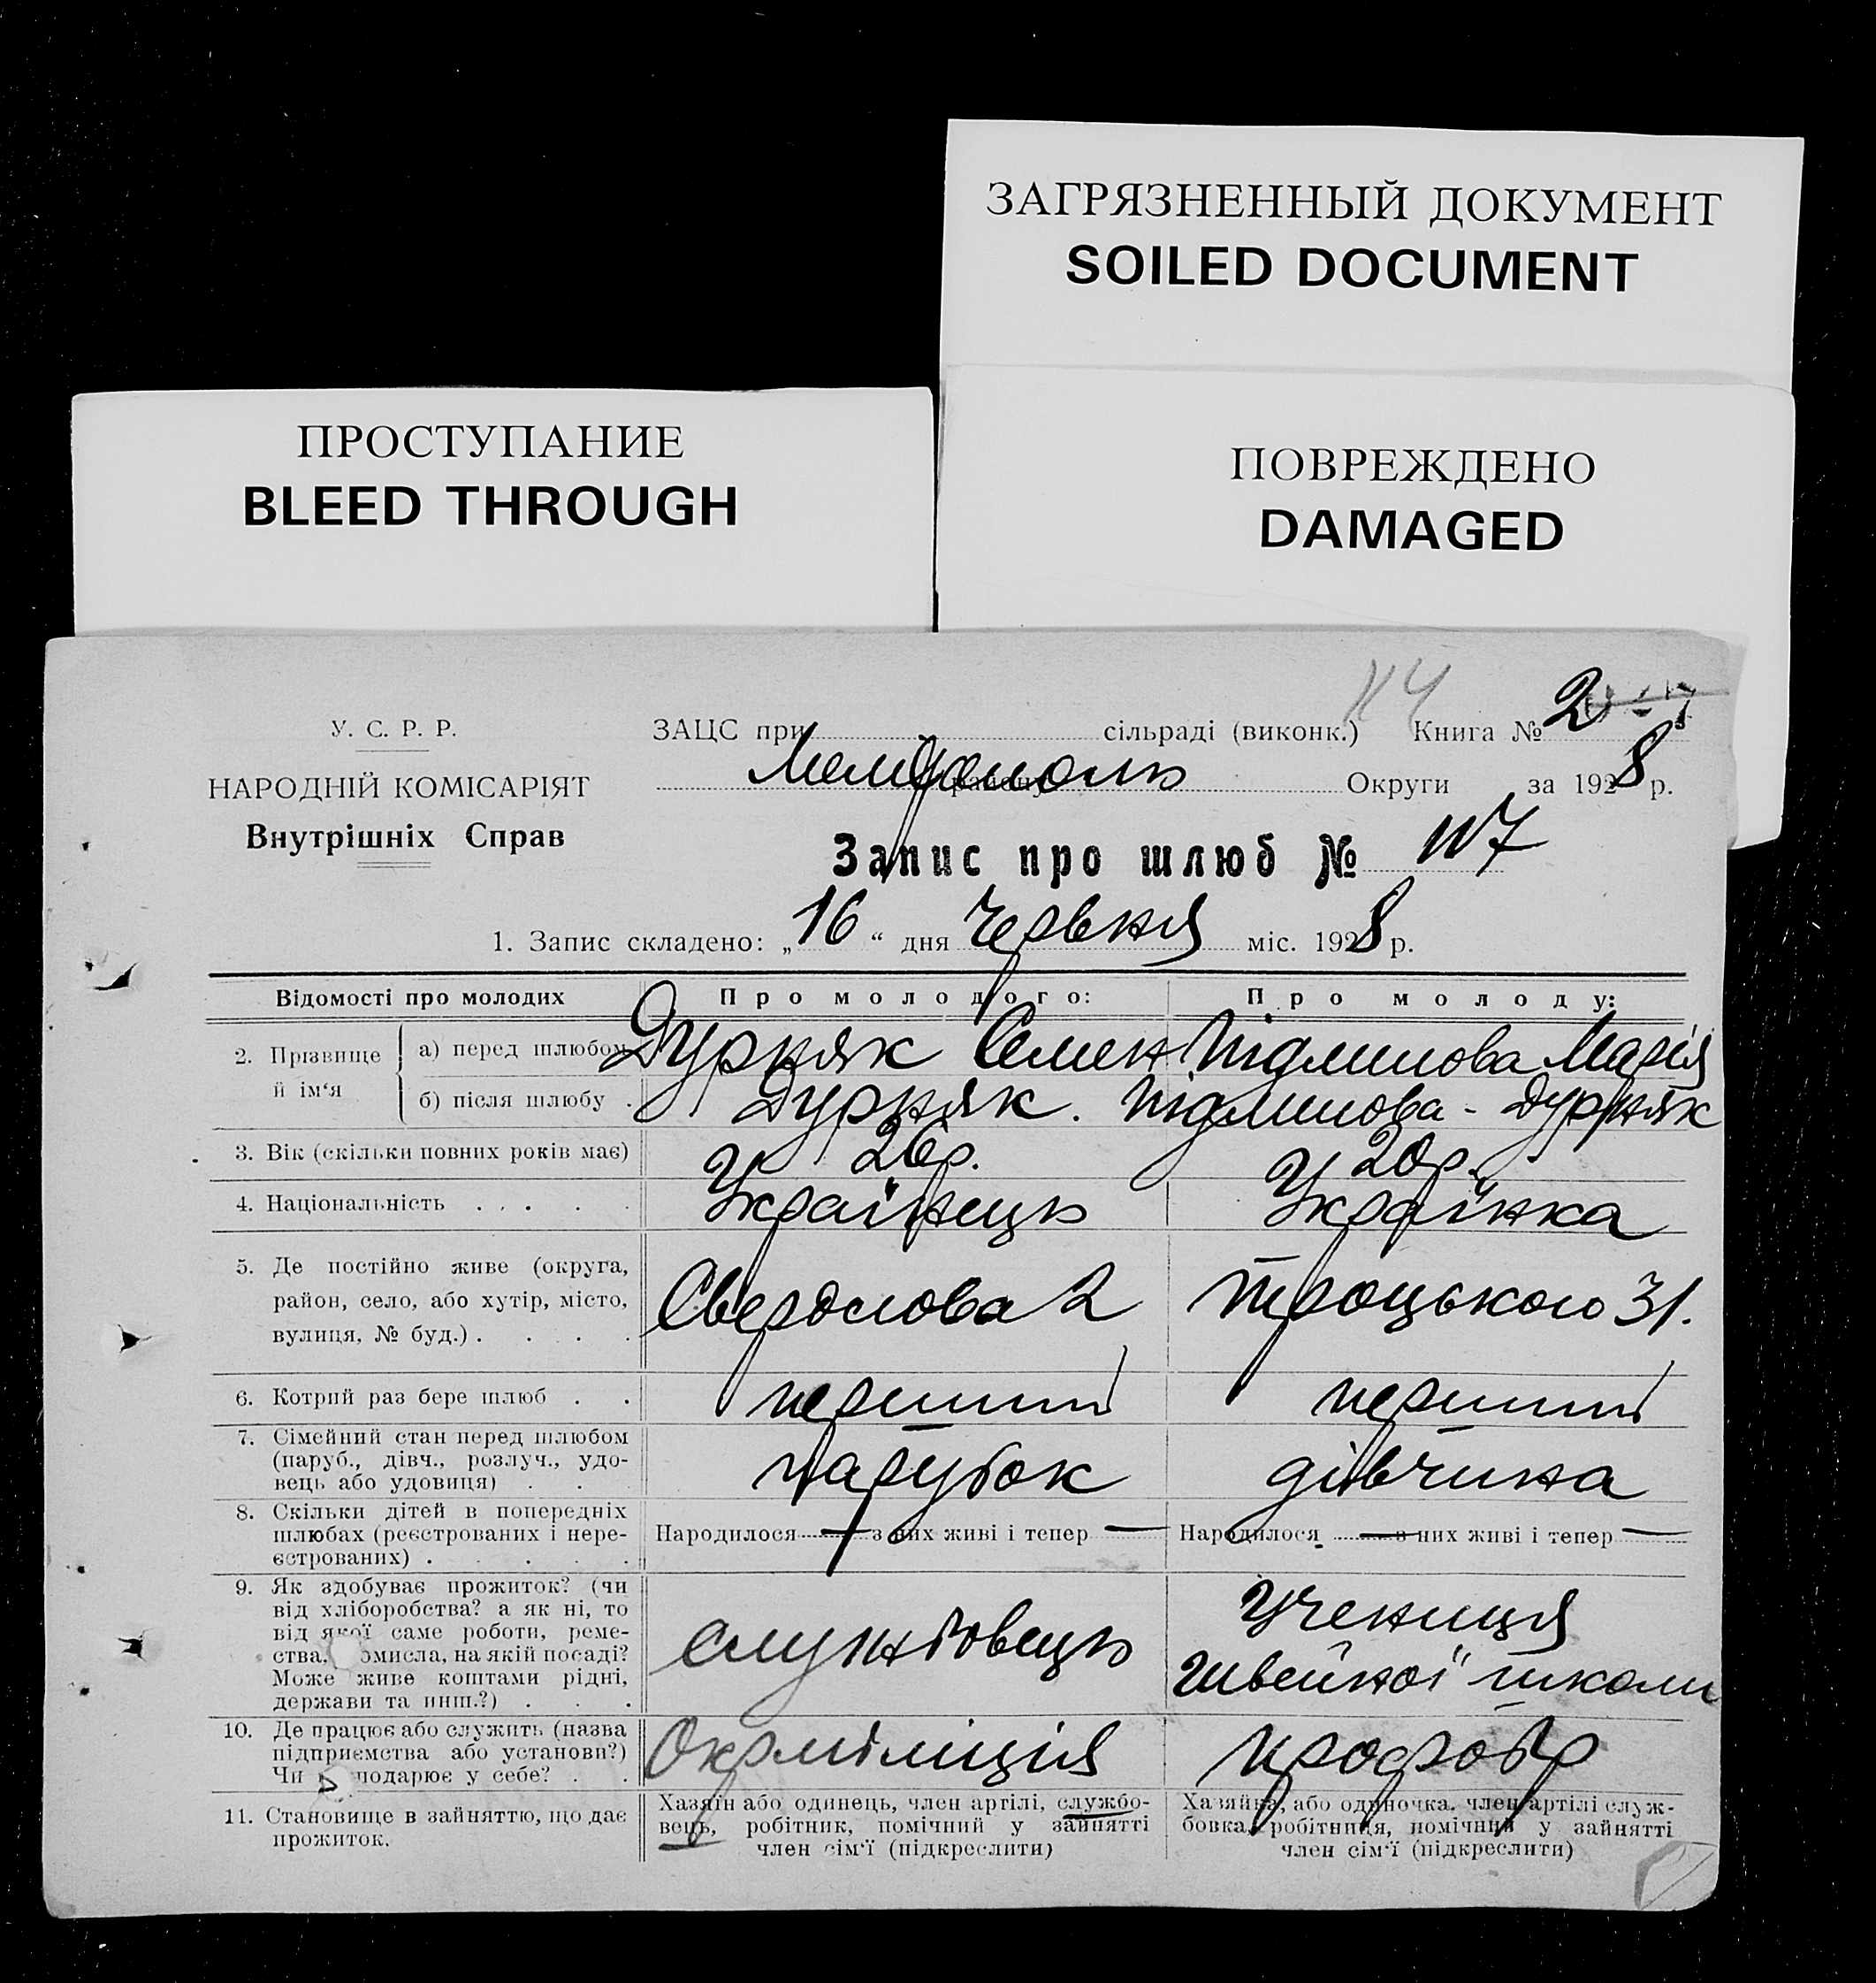 ЗАГРЯЗНЕННЫЙ ДОКУМЕНТ
SOILED DOCUMENT
ПРОСТУПАНИЕ
BLEED THROUGH
ПОВРЕЖДЕНО
DAMAGED
У. С. Р. Р.
НАРОДНІЙ КОМІСАРІЯТ
Внутрішніх Справ
ЗАЦС при сільраді (виконк.) Книга № 2
району Округи за 1928 р.
Запис про шлюб № 117
1. Запис складено: „16“ дня Червня міс. 1928 р.
Відомості про молодих
Про молодого:
Про молоду:
2. Прізвище й ім‘я
а) перед шлюбом Дурняк Семен Підлипова Марія
б) після шлюбу . Дурняк. Підлипова - Дурняк
3. Вік (скільки повних років має) 26 р. 20 р.
4. Національність . . . . . Українець Українка
5. Де постійно живе (округа,
район, село, або хутір, місто,
вулиця, № буд.) . . . .
Свердлова 2
Троцького 31.
6. Котрий раз бере шлюб . . перший перший
7. Сімейний стан перед шлюбом
(паруб., дівч., розлуч., удо-
вець або удовиця) . . .
парубок
дівчина
8. Скільки дітей в попередніх
шлюбах (реєстрованих і нере-
єстрованих) . . . . .
Народилося — з них живі і тепер —
Народилося — з них живі і тепер —
9. Як здобуває прожиток? (чи
від хліборобства? а як ні, то
від якої саме роботи, реме-
ства, омисла, на якій посаді?
Може живе коштами рідні,
держави та инш.?) . . .
службовець
Учениця
Швейної школи
10. Де працює або служить (назва
підприємства або установи?)
Чи подарює у себе? . .
Окрміліція
11. Становище в зайняттю, що дає
прожиток.
Хазяїн або одинець, член артілі, службо-
вець, робітник, помічний у зайнятті
член сім‘ї (підкреслити)
Хазяйка, або одиночка, член артілі служ-
бовка, робітниця, помічний у зайнятті
член сім‘ї (підкреслити)